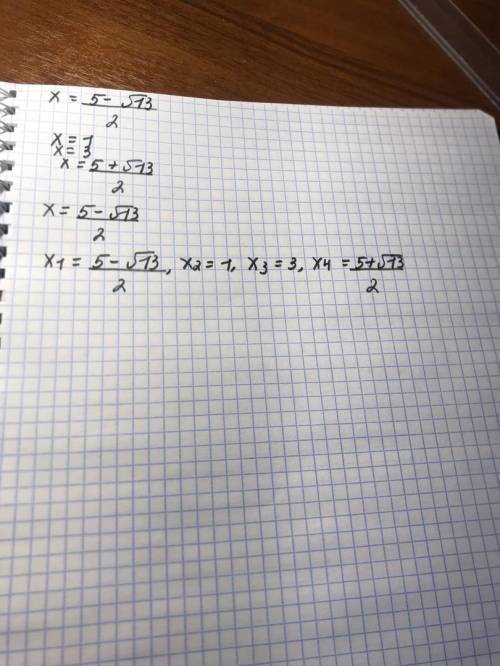 x = 5 - √13 / 2
x = 1
x = 3
x = 5 + √13 / 2
x = 5 - √13 / 2
x1 = 5 - √13 / 2, x2 = 1, x3 = 3, x4 = 5+√13 / 2